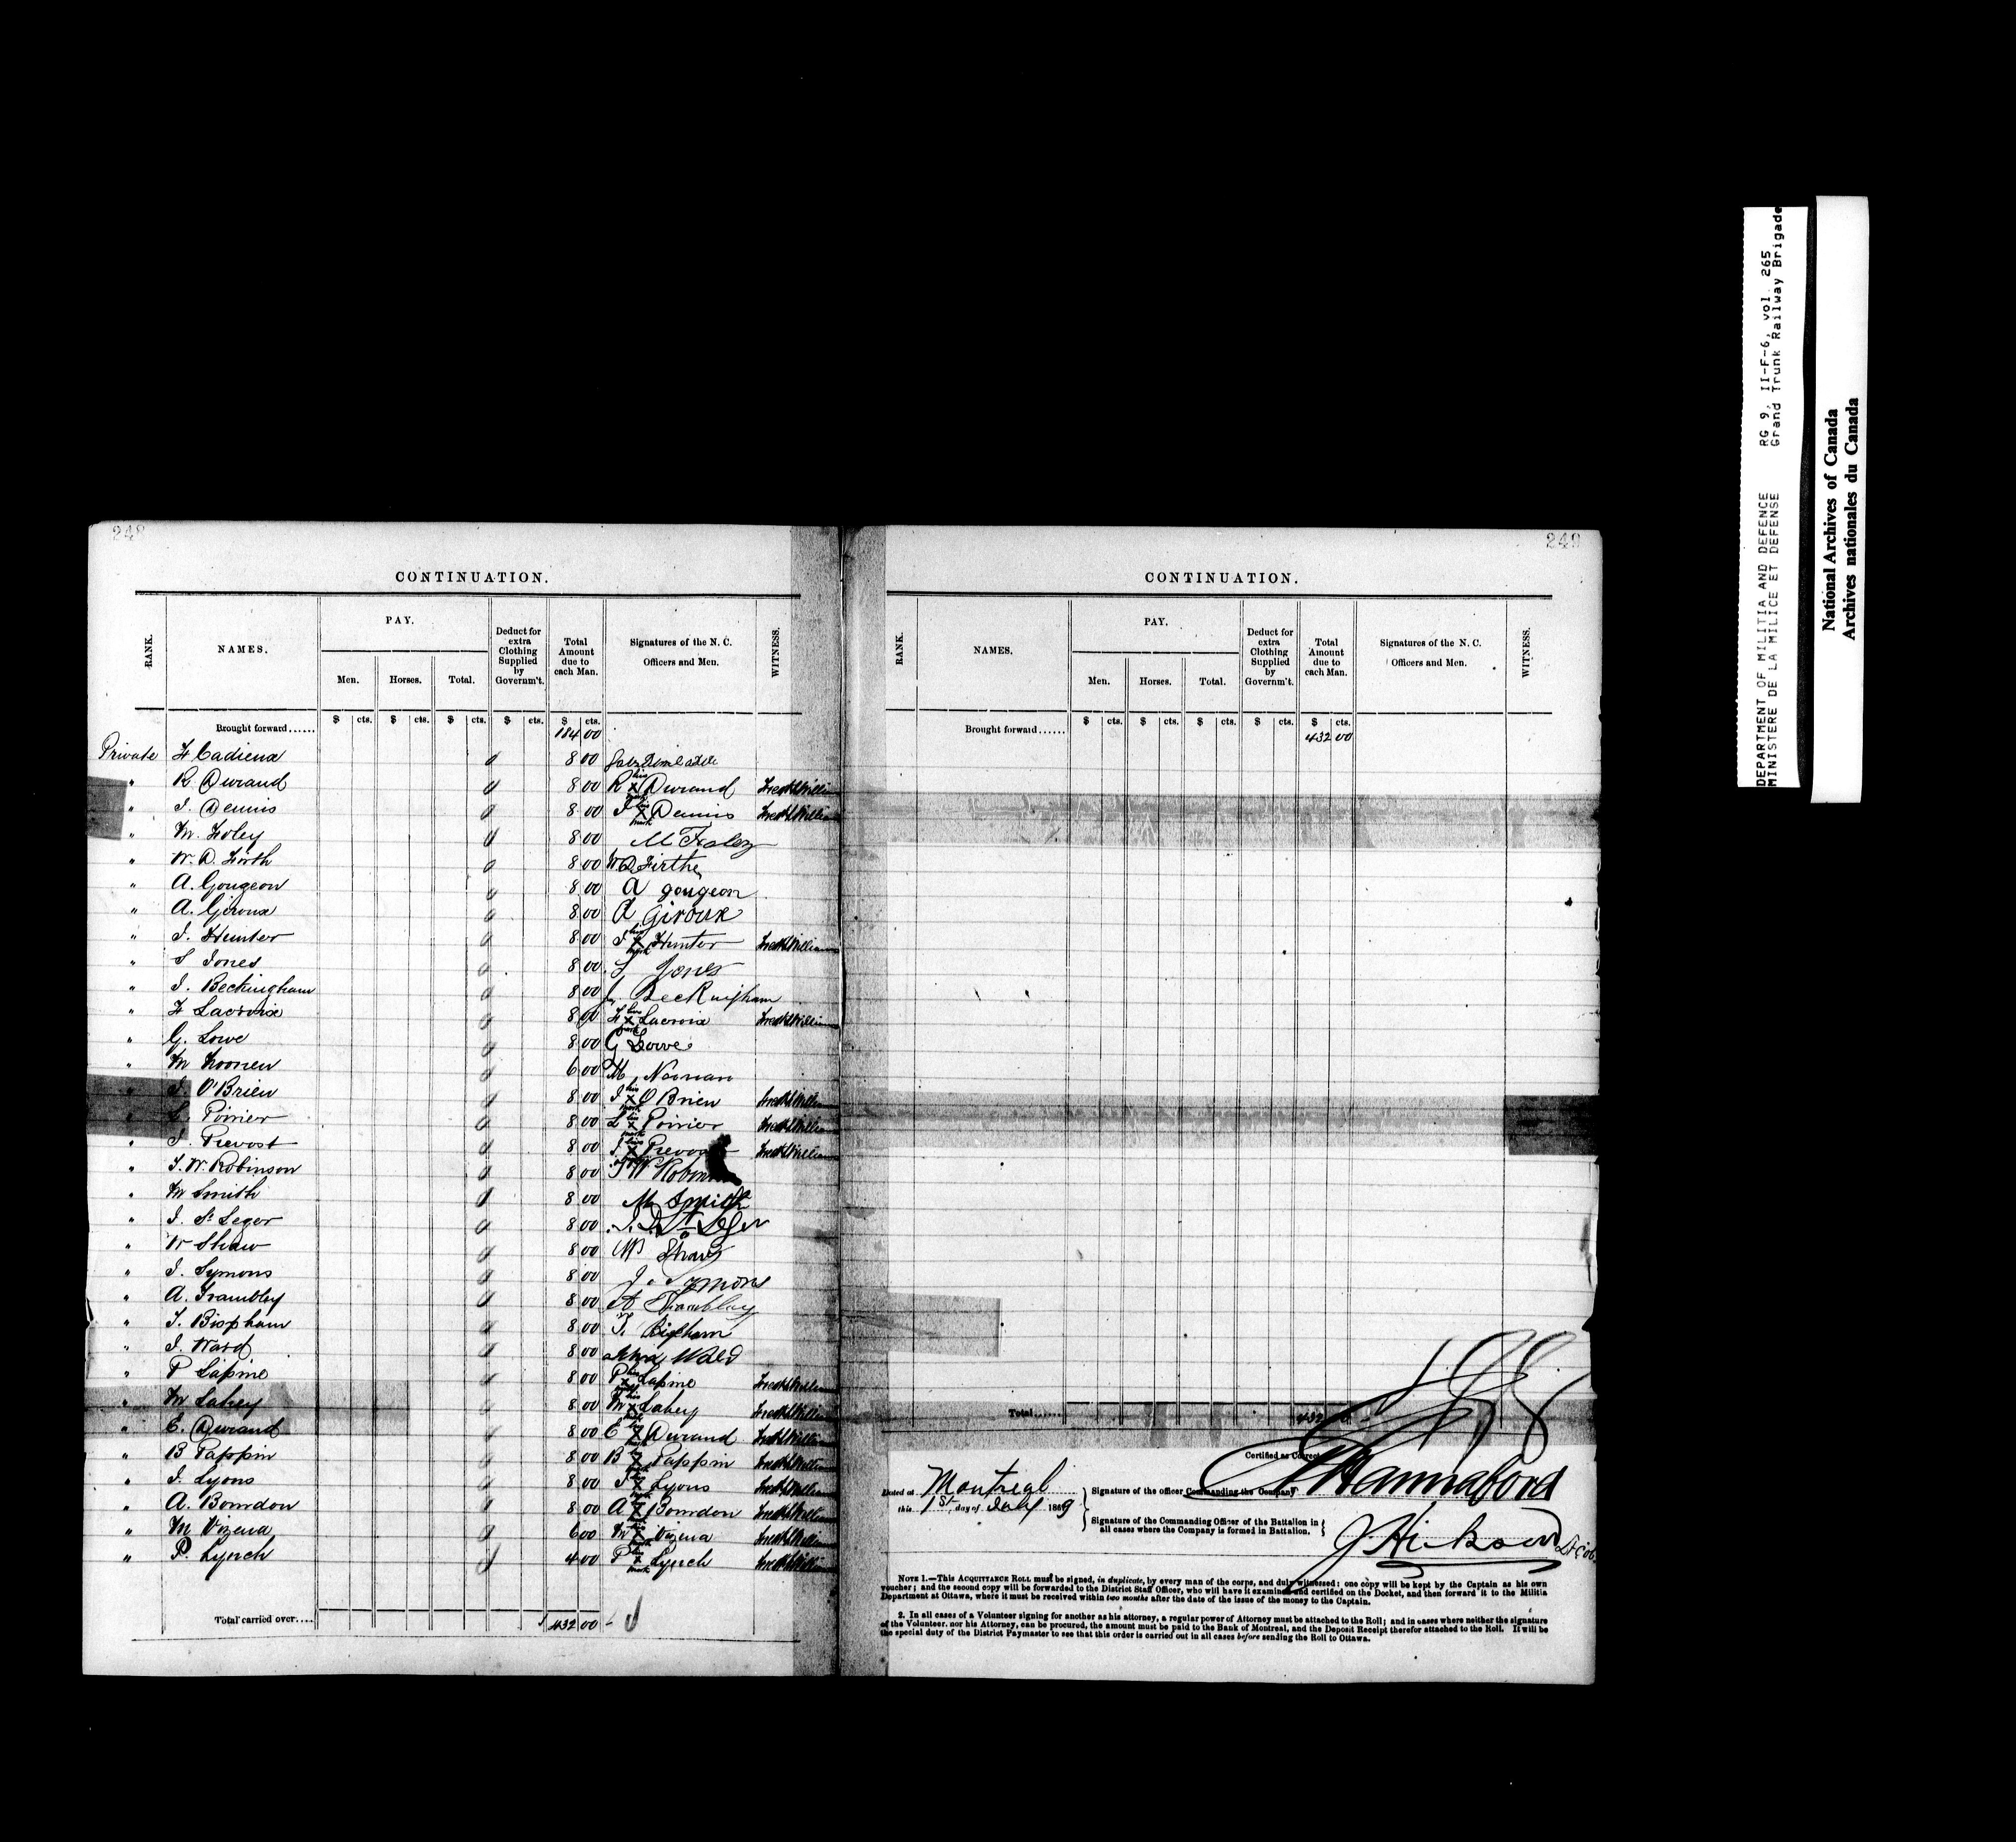 248
CONTINUATION.
RANK. NAMES. PAY. Men. Horses. Total. Deduct for extra Clothing Supplied by Governm't. Total Amount due to each Man. Signatures of the N. C. Officers and Men. WITNESS.
$ cts. $ cts. $ cts. $ cts. $ cts.
Brought forward...... 184 00
Private F Cadieux 8 00
" R Durand 8 00 R his x mark Durand
" J. Dennis 8 00 J his x mark Dennis
" M. Foley 8 00 M Foley
" W. D. Firth 8 00 W D Firth
" A. Gougeon 8 00 A gougeon
" A. Giroux 8 00 A Giroux
" J. Hunter 8 00 J his x mark Hunter
" S Jones 8 00 S Jones
" J. Beckingham 8 00 J. Beckingham
" F Lacroix 8 00 F his x mark Lacroix
" G. Lowe 8 00 G Lowe
" M Noonen 6 00 M Noonan
" J. O'Brien 8 00 J his x mark O Brien
" L. Poirier 8 00 L his x mark Poirier
" J. Prevost 8 00 J. his x mark Prevost
" T. W. Robinson 8 00 T W Robinson
" M Smith 8 00 M Smith
" J. St Leger 8 00 St Leger
" W Shaw 8 00 W Shaw
" J. Symons 8 00 J. Symons
" A. Trambley 8 00 A Trambley
" T. Bispham 8 00 T. Bispham
" J. Ward 8 00
" P Lapine 8 00 P his x mark Lapine
" M Lahey 8 00 M his x mark Lahey
" E. Durand 8 00 E his x mark Durand
" B Pappin 8 00 B his x mark Pappin
" J. Lyons 8 00 J his x mark Lyons
" A. Bourdon 8 00 A his x mark Bourdon
" M Vizena 6 00 M his x mark Vizena
" P. Lynch 4 00 P his x mark Lynch
Total carried over.... $ 432 00
249
CONTINUATION.
RANK. NAMES. PAY. Men. Horses. Total. Deduct for extra Clothing Supplied by Governm't. Total Amount due to each Man. Signatures of the N. C. Officers and Men. WITNESS.
$ cts. $ cts. $ cts. $ cts. $ cts.
Brought forward...... 432 00
Total...... 432
Certified as Correct
Dated at Montreal
this 1st day of July 1869
Signature of the officer Commanding the Company Hannaford
Signature of the Commanding Officer of the Battalion in all cases where the Company is formed in Battalion. J Hickson Lt Col.
NOTE 1.—This ACQUITTANCE ROLL must be signed, in duplicate, by every man of the corps, and duly witnessed: one copy will be kept by the Captain as his own
voucher; and the second copy will be forwarded to the District Staff Officer, who will have it examined and certified on the Docket, and then forward it to the Militia
Department at Ottawa, where it must be received within two months after the date of the issue of the money to the Captain.
2. In all cases of a Volunteer signing for another as his attorney, a regular power of Attorney must be attached to the Roll; and in cases where neither the signature
of the Volunteer, nor his Attorney, can be procured, the amount must be paid to the Bank of Montreal, and the Deposit Receipt therefor attached to the Roll. It will be
the special duty of the District Paymaster to see that this order is carried out in all cases before sending the Roll to Ottawa.
DEPARTMENT OF MILITIA AND DEFENCE RG 9, II-F-6, vol. 265
MINISTERE DE LA MILICE ET DEFENSE Grand Trunk Railway Brigade
National Archives of Canada
Archives nationales du Canada